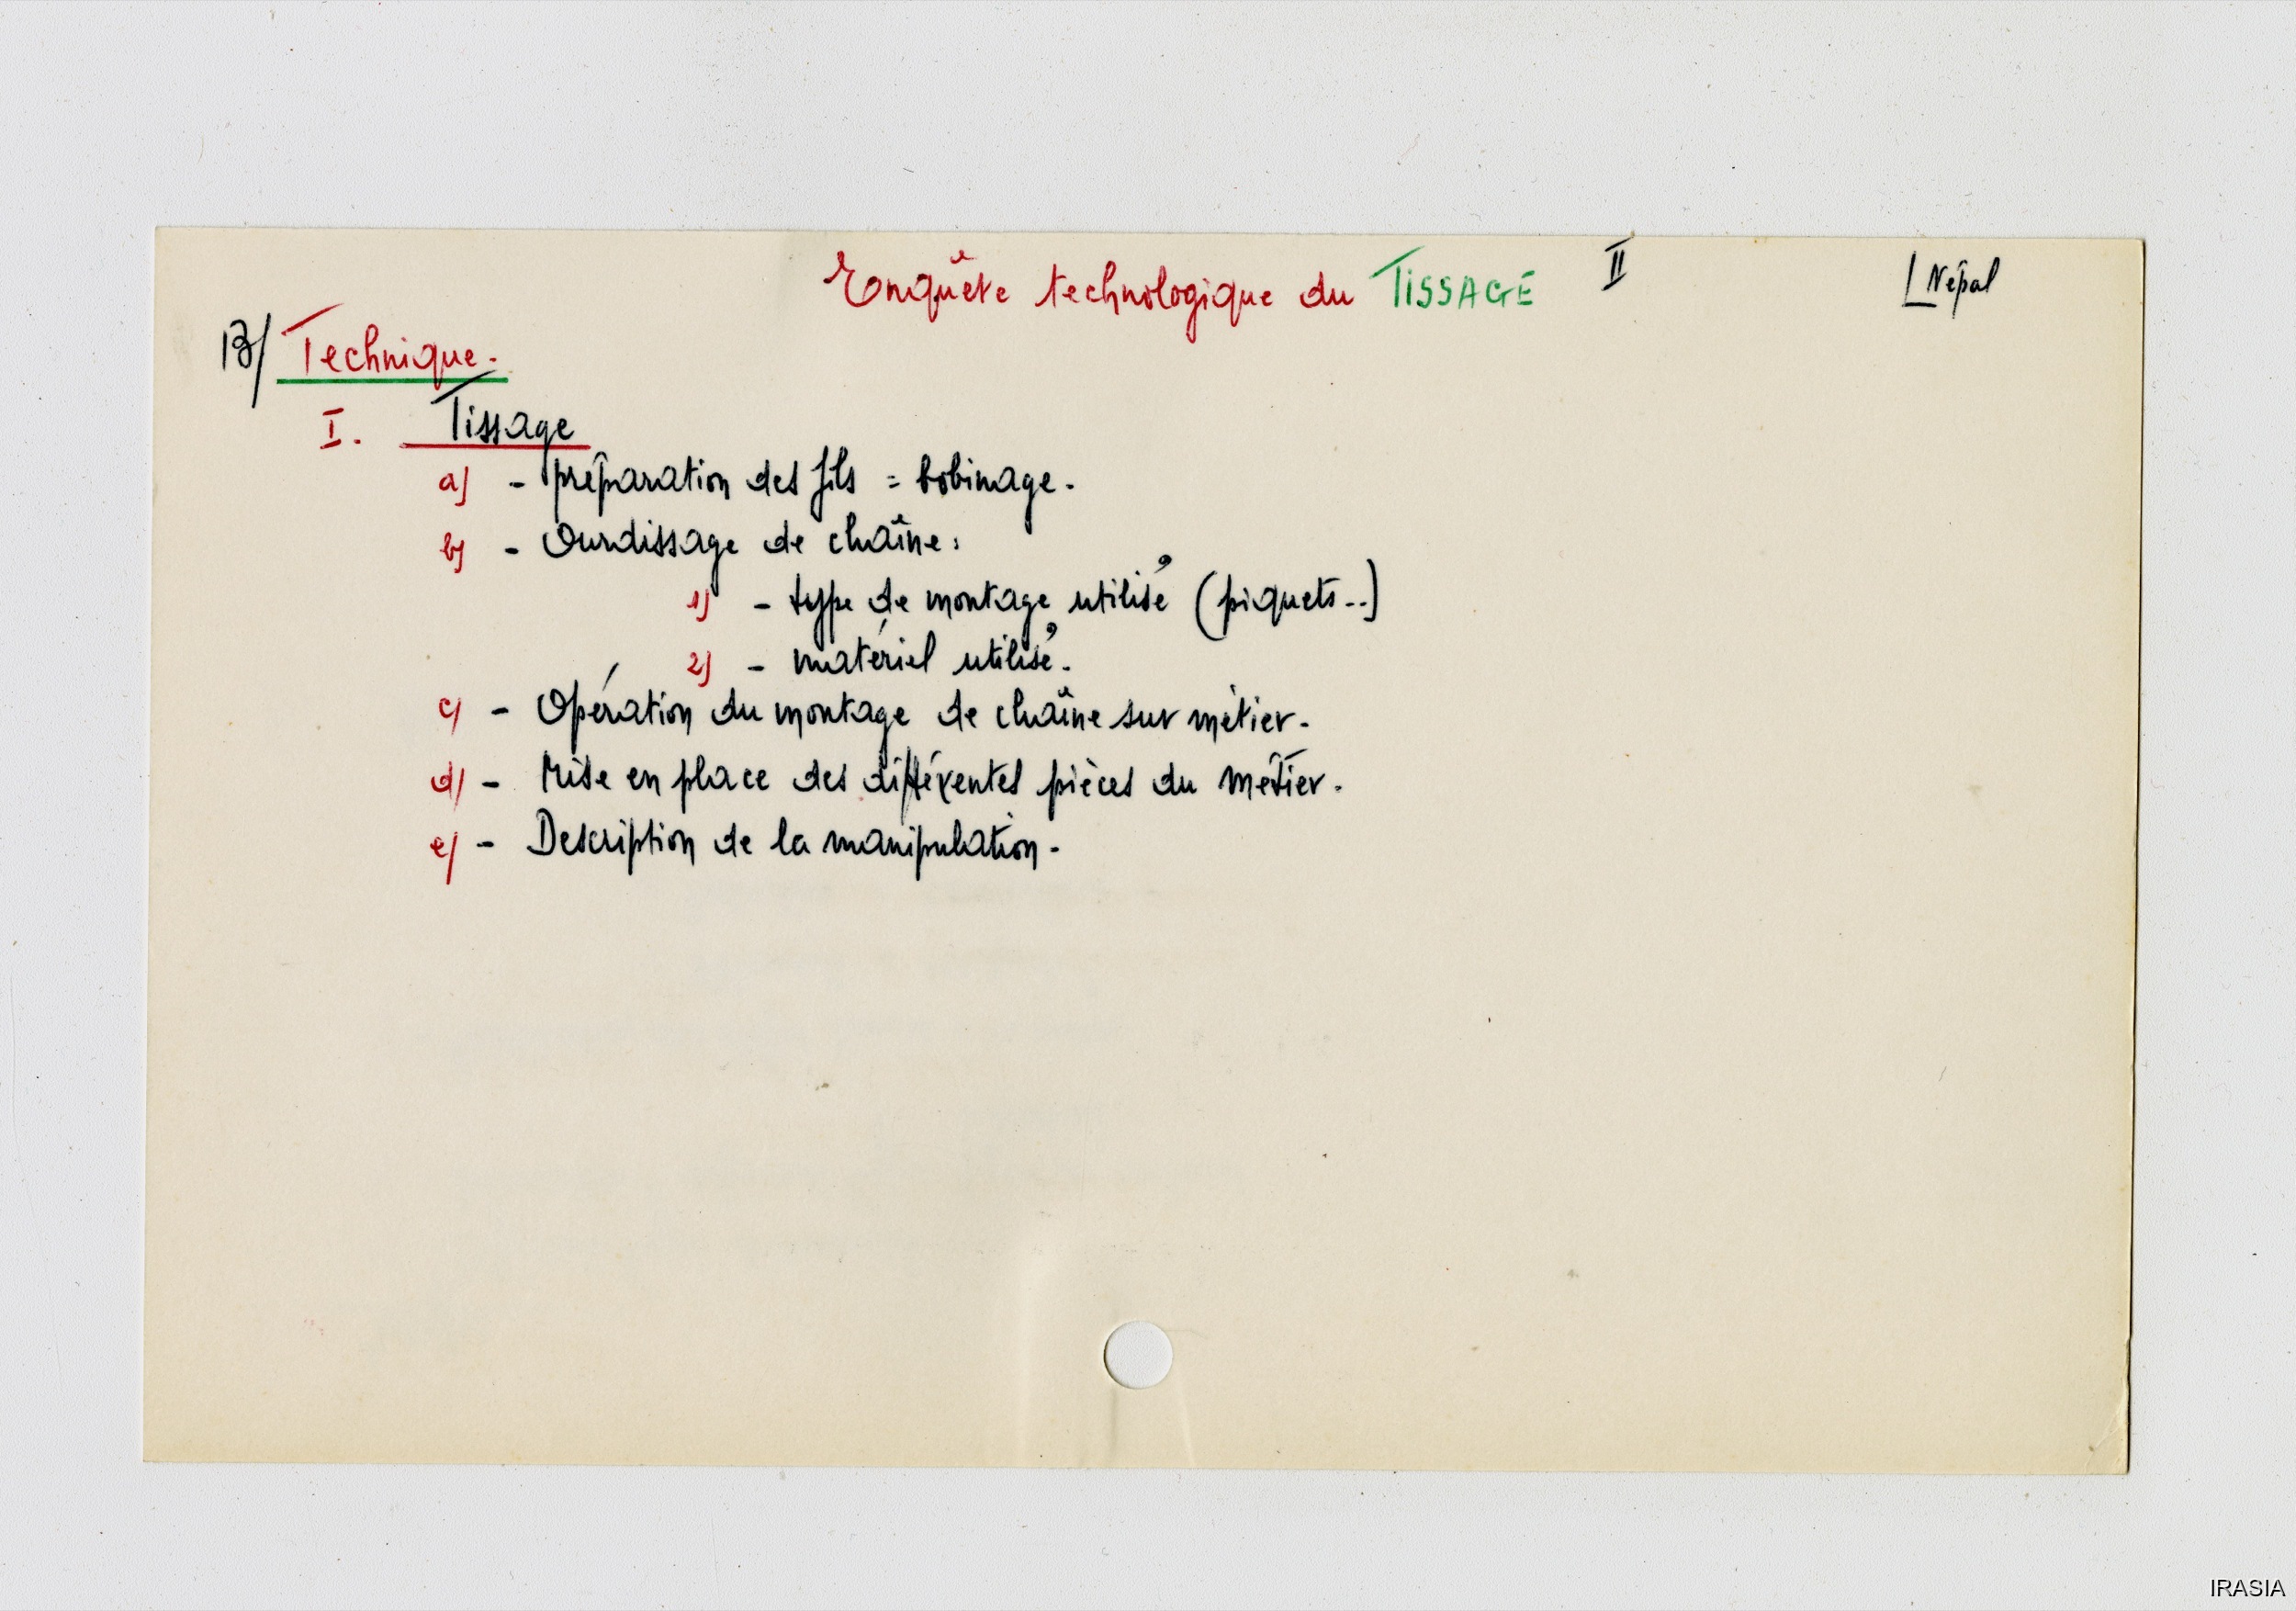 Enquête technologique du TISSAGE II Népal
B/ Technique.
I. Tissage
a) - préparation des fils = bobinage.
b) - Ourdissage de chaîne:
1) - type de montage utilisé (piquets..)
2) - matériel utilisé.
c) - Opération du montage de chaîne sur métier.
d) - Mise en place des différentes pièces du métier.
e) - Description de la manipulation.
IRASIA